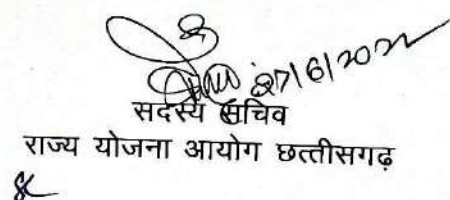 27/6/2022
सदस्य सचिव
राज्य योजना आयोग छत्तीसगढ़